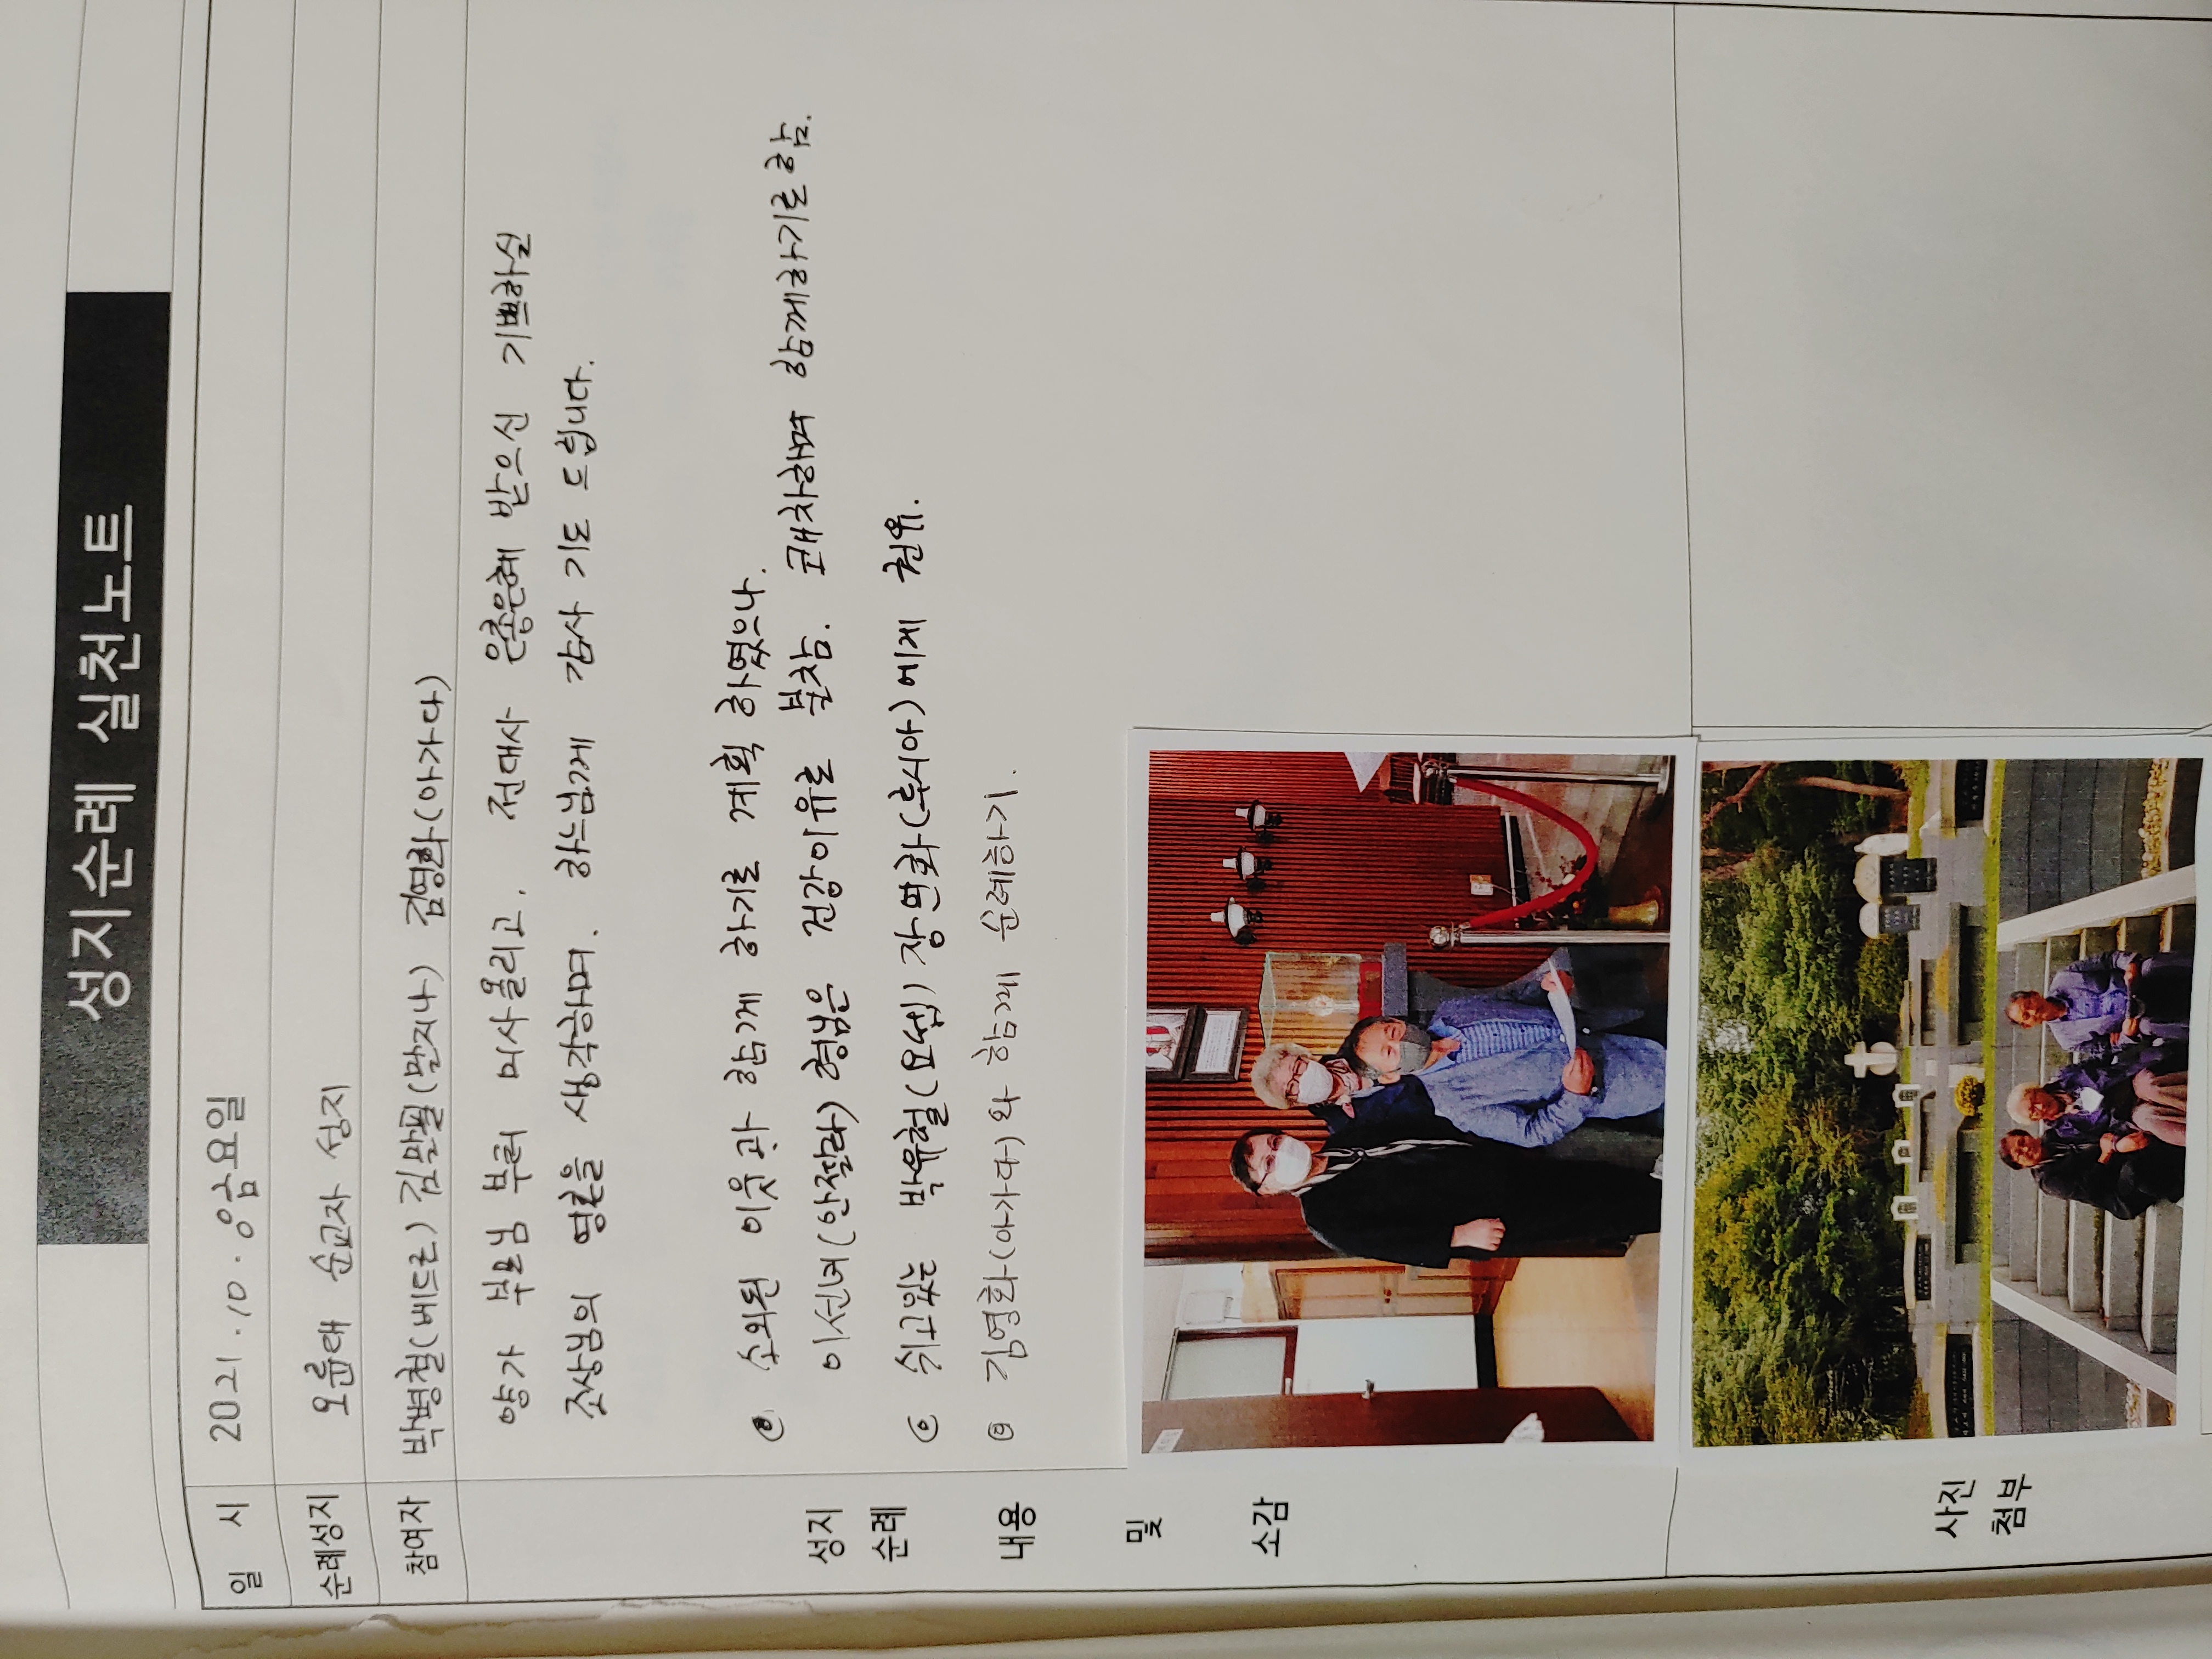 성지순례 실천노트
일 시 2021. 10. 8 금요일
순례성지 오륜대 순교자 성지
참여자 박병철(베드로) 김말필(말지나) 김영화(아가다)
양가 부모님 부터 미사올리고, 전대사 은총은혜 받으신 기쁘하실
조상님의 영혼을 생각하며, 하느님께 감사 기도 드립니다.
소외된 이웃과 함께 하기로 계획 하였으나.
이선녀(안젤라) 형님은 건강이유로 불참. 교대차하며 함께하기로 함.
쉬고있는 박유철(요셉) 장면화(루시아)에게 권유.
김영화(아가다)와 함께 순례하기.
성지
순례
내용
및
소감
사진
첨부